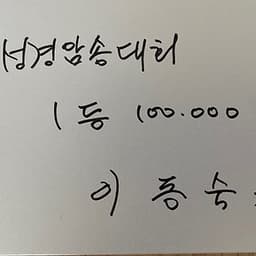 성경암송대회
1등 100.000
이동숙